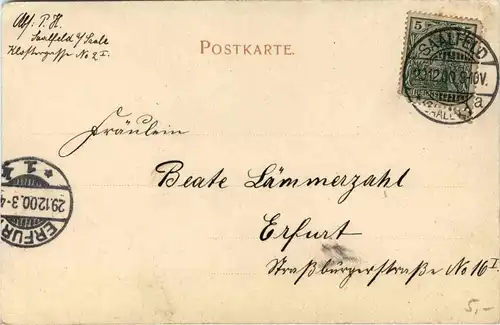 Abs. P. H.
Saalfeld a/Saale
Klostergasse No 2 I.
POSTKARTE.
5
SAALFELD
a
SAALE
Fräulein
Beate Lämmerzahl
Erfurt
Straßburgerstraße No 16 I
* 1
29.12.00.3-4
ERFUR
5,-